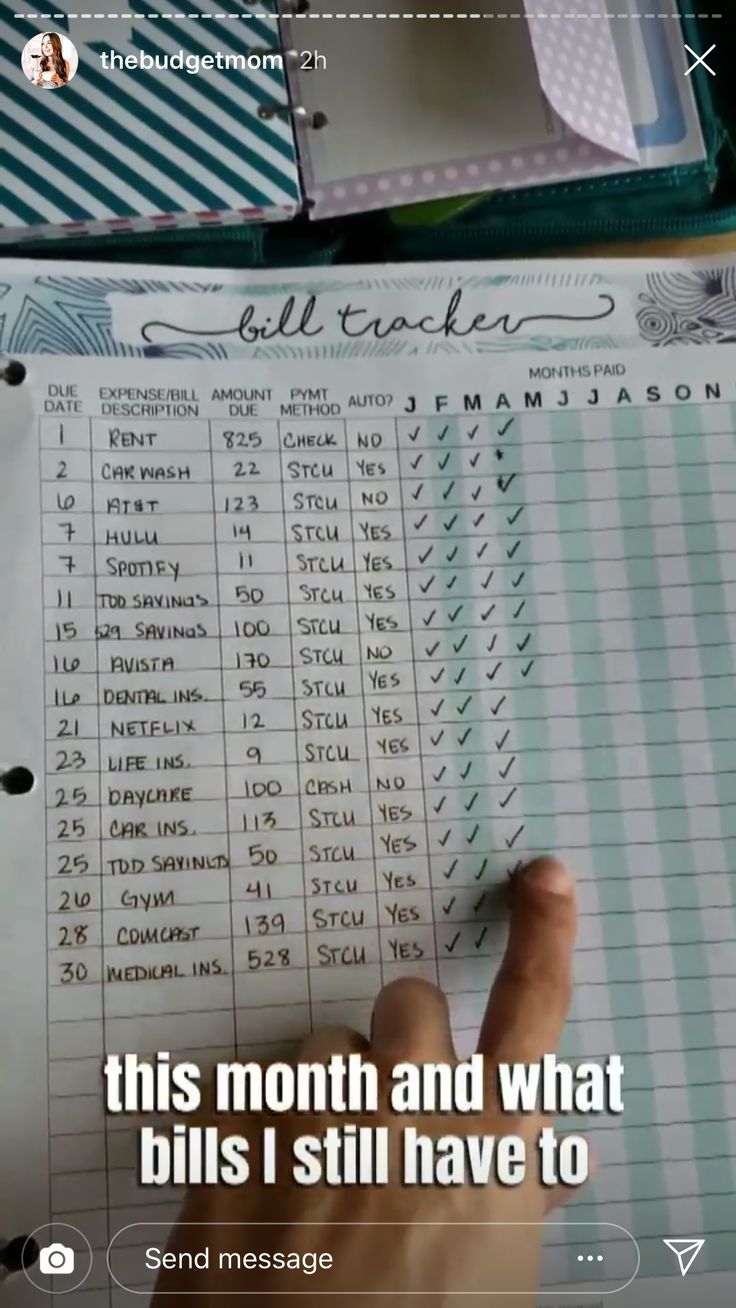 thebudgetmom 2h
bill tracker
MONTHS PAID
DUE DATE EXPENSE/BILL DESCRIPTION AMOUNT DUE PYMT METHOD AUTO? J F M A M J J A S O N
1 RENT 825 CHECK NO ✓ ✓ ✓ ✓
2 CAR WASH 22 STCU YES ✓ ✓ ✓ *
6 AT&T 123 STCU NO ✓ ✓ ✓ ✓
7 HULU 14 STCU YES ✓ ✓ ✓ ✓
7 SPOTIFY 11 STCU YES ✓ ✓ ✓ ✓
11 TDD SAVINGS 50 STCU YES ✓ ✓ ✓ ✓
15 529 SAVINGS 100 STCU YES ✓ ✓ ✓ ✓
16 AVISTA 170 STCU NO ✓ ✓ ✓ ✓
16 DENTAL INS. 55 STCU YES ✓ ✓ ✓ ✓
21 NETFLIX 12 STCU YES ✓ ✓ ✓
23 LIFE INS. 9 STCU YES ✓ ✓ ✓
25 DAYCARE 100 CASH NO ✓ ✓ ✓
25 CAR INS. 113 STCU YES ✓ ✓ ✓
25 TDD SAVINGS 50 STCU YES ✓ ✓ ✓
26 GYM 41 STCU YES ✓ ✓ ✓
28 COMCAST 139 STCU YES ✓ ✓
30 MEDICAL INS. 528 STCU YES ✓ ✓
this month and what
bills I still have to
Send message